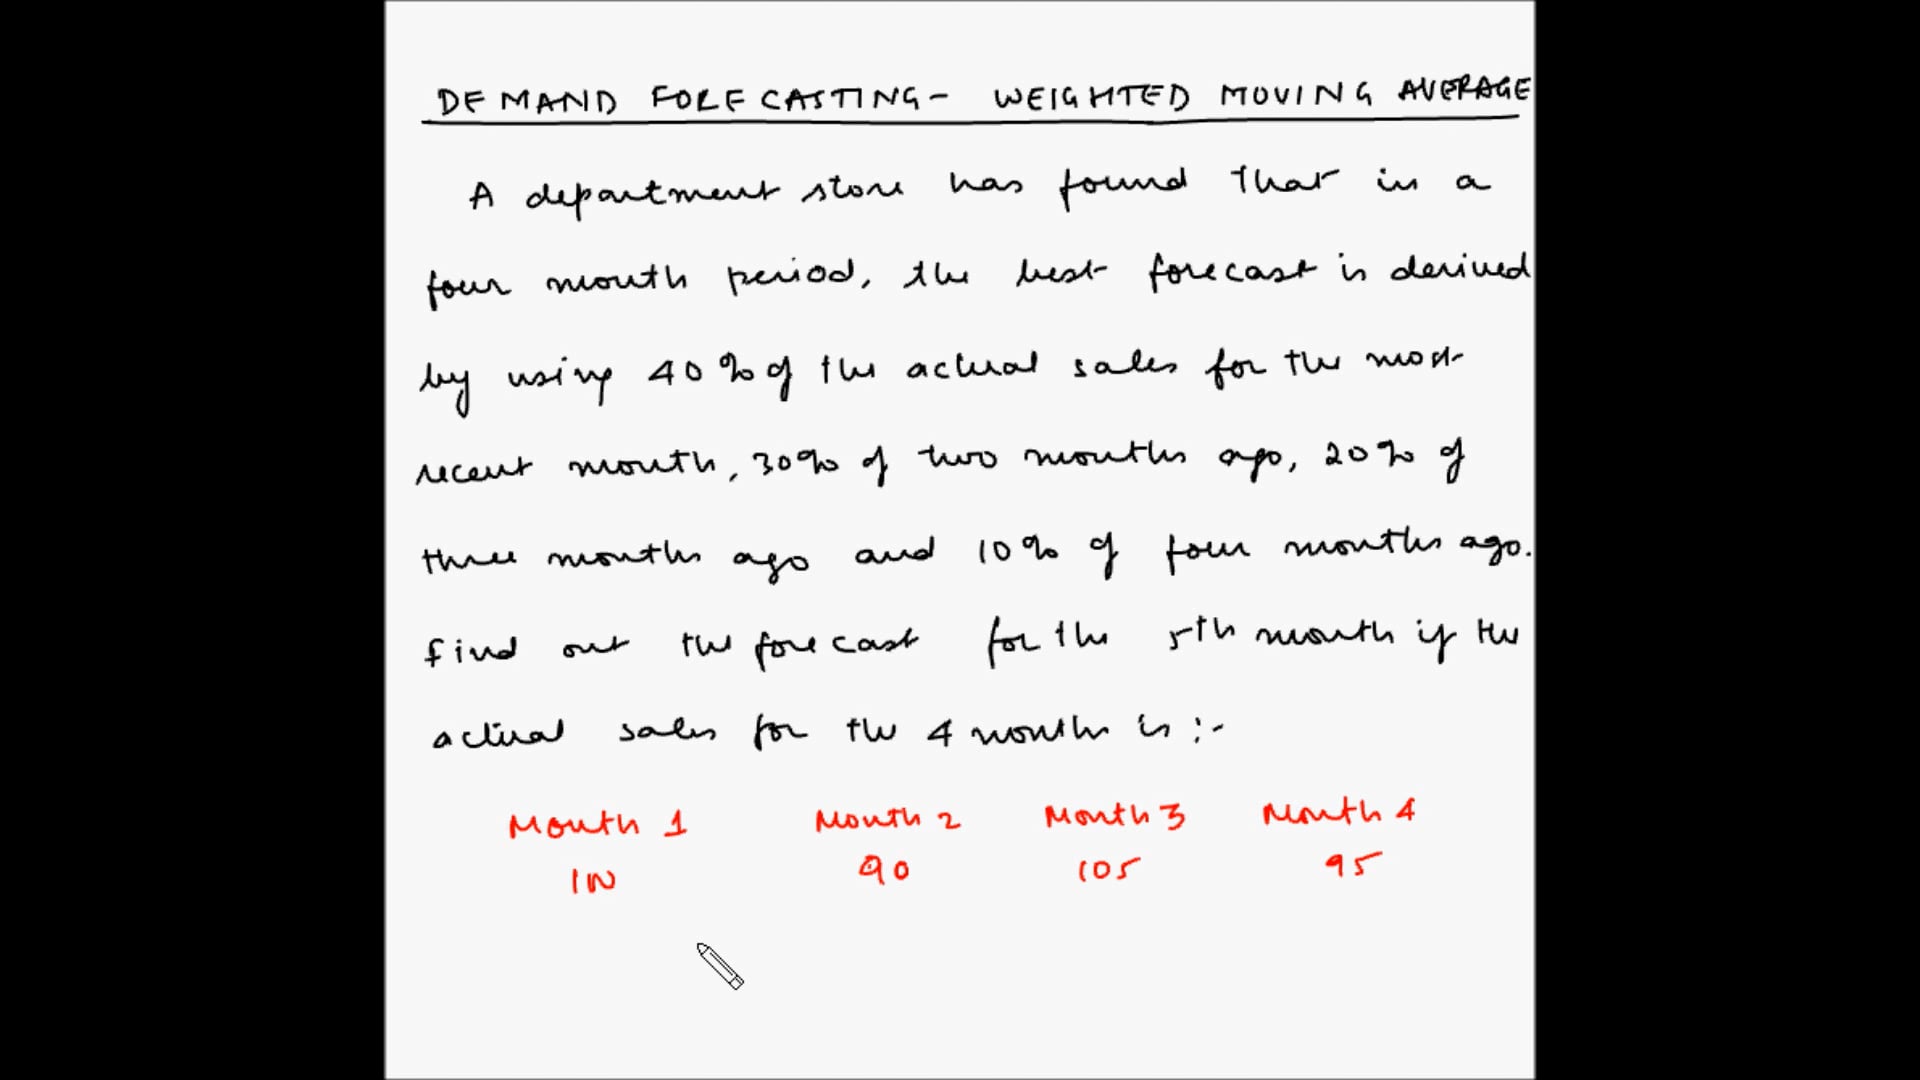 DEMAND FORECASTING- WEIGHTED MOVING AVERAGE
A department store has found that in a
four month period, the best forecast is derived
by using 40% of the actual sales for the most
recent month, 30% of two months ago, 20% of
three months ago and 10% of four months ago.
find out the forecast for the 5th month if the
actual sales for the 4 months is :-
Month 1 Month 2 Month 3 Month 4
100 90 105 95